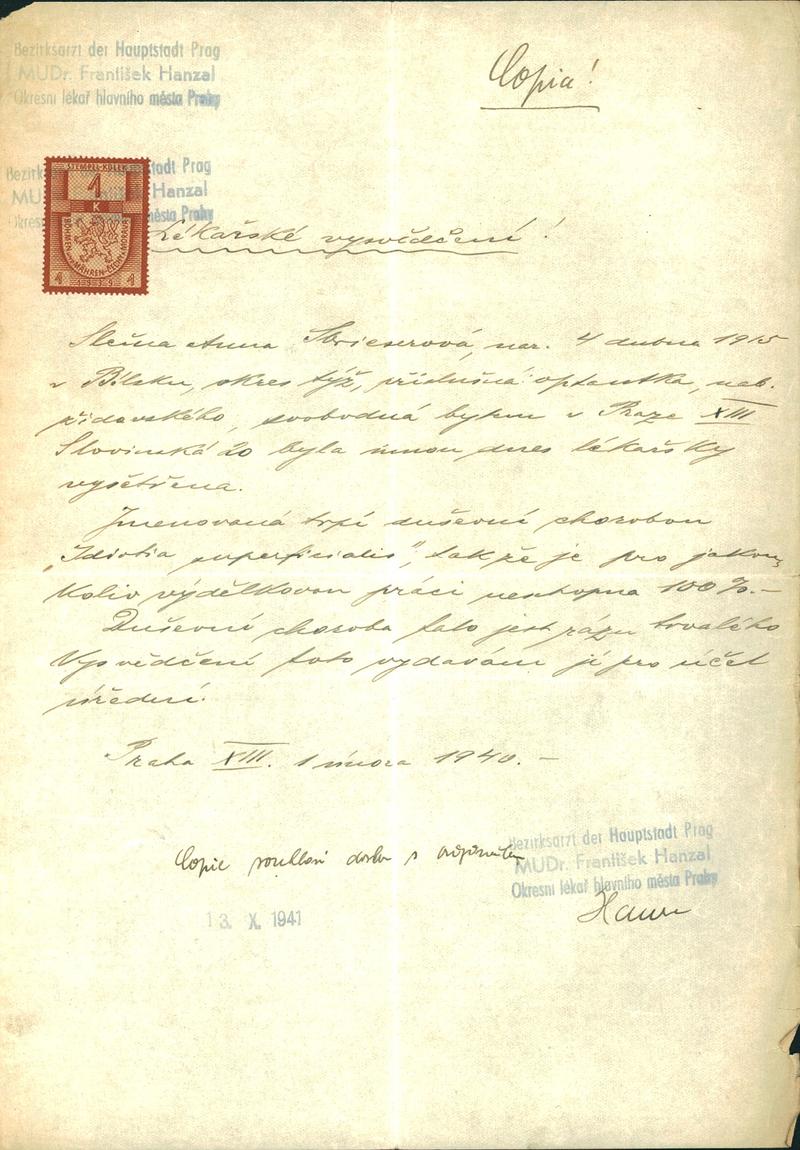 Bezirksarzt der Hauptstadt Prag
MUDr. František Hanzal
Okresní lékař hlavního města Prahy
Copia!
Bezirk Prag
MU Hanzal
Okres města Prahy
STEMPEL-KOLEK
1
K
BÖHMEN u. MÄHREN-ČECHY a MORAVA
1 1939 1
Lékařské vysvědčení!
Slečna Anna nar. 4 dubna 1915
v Bílsku, okres týž, příslušná: optantka, náb.
židovského, svobodná bytem v Praze XIII
Slovinská 20 byla mnou dnes lékařsky
vyšetřena.
Jmenovaná trpí duševní chorobou
„Idiotia superficialis", takže je pro jakou-
koliv výdělkovou práci neschopna 100%.-
Duševní choroba tato jest rázu trvalého
Vysvědčení toto vydávám jí pro účel
úřední.
Praha XIII. 1 února 1940. -
Copie souhlasí s
13. X. 1941
Bezirksarzt der Hauptstadt Prag
MUDr. František Hanzal
Okresní lékař hlavního města Prahy